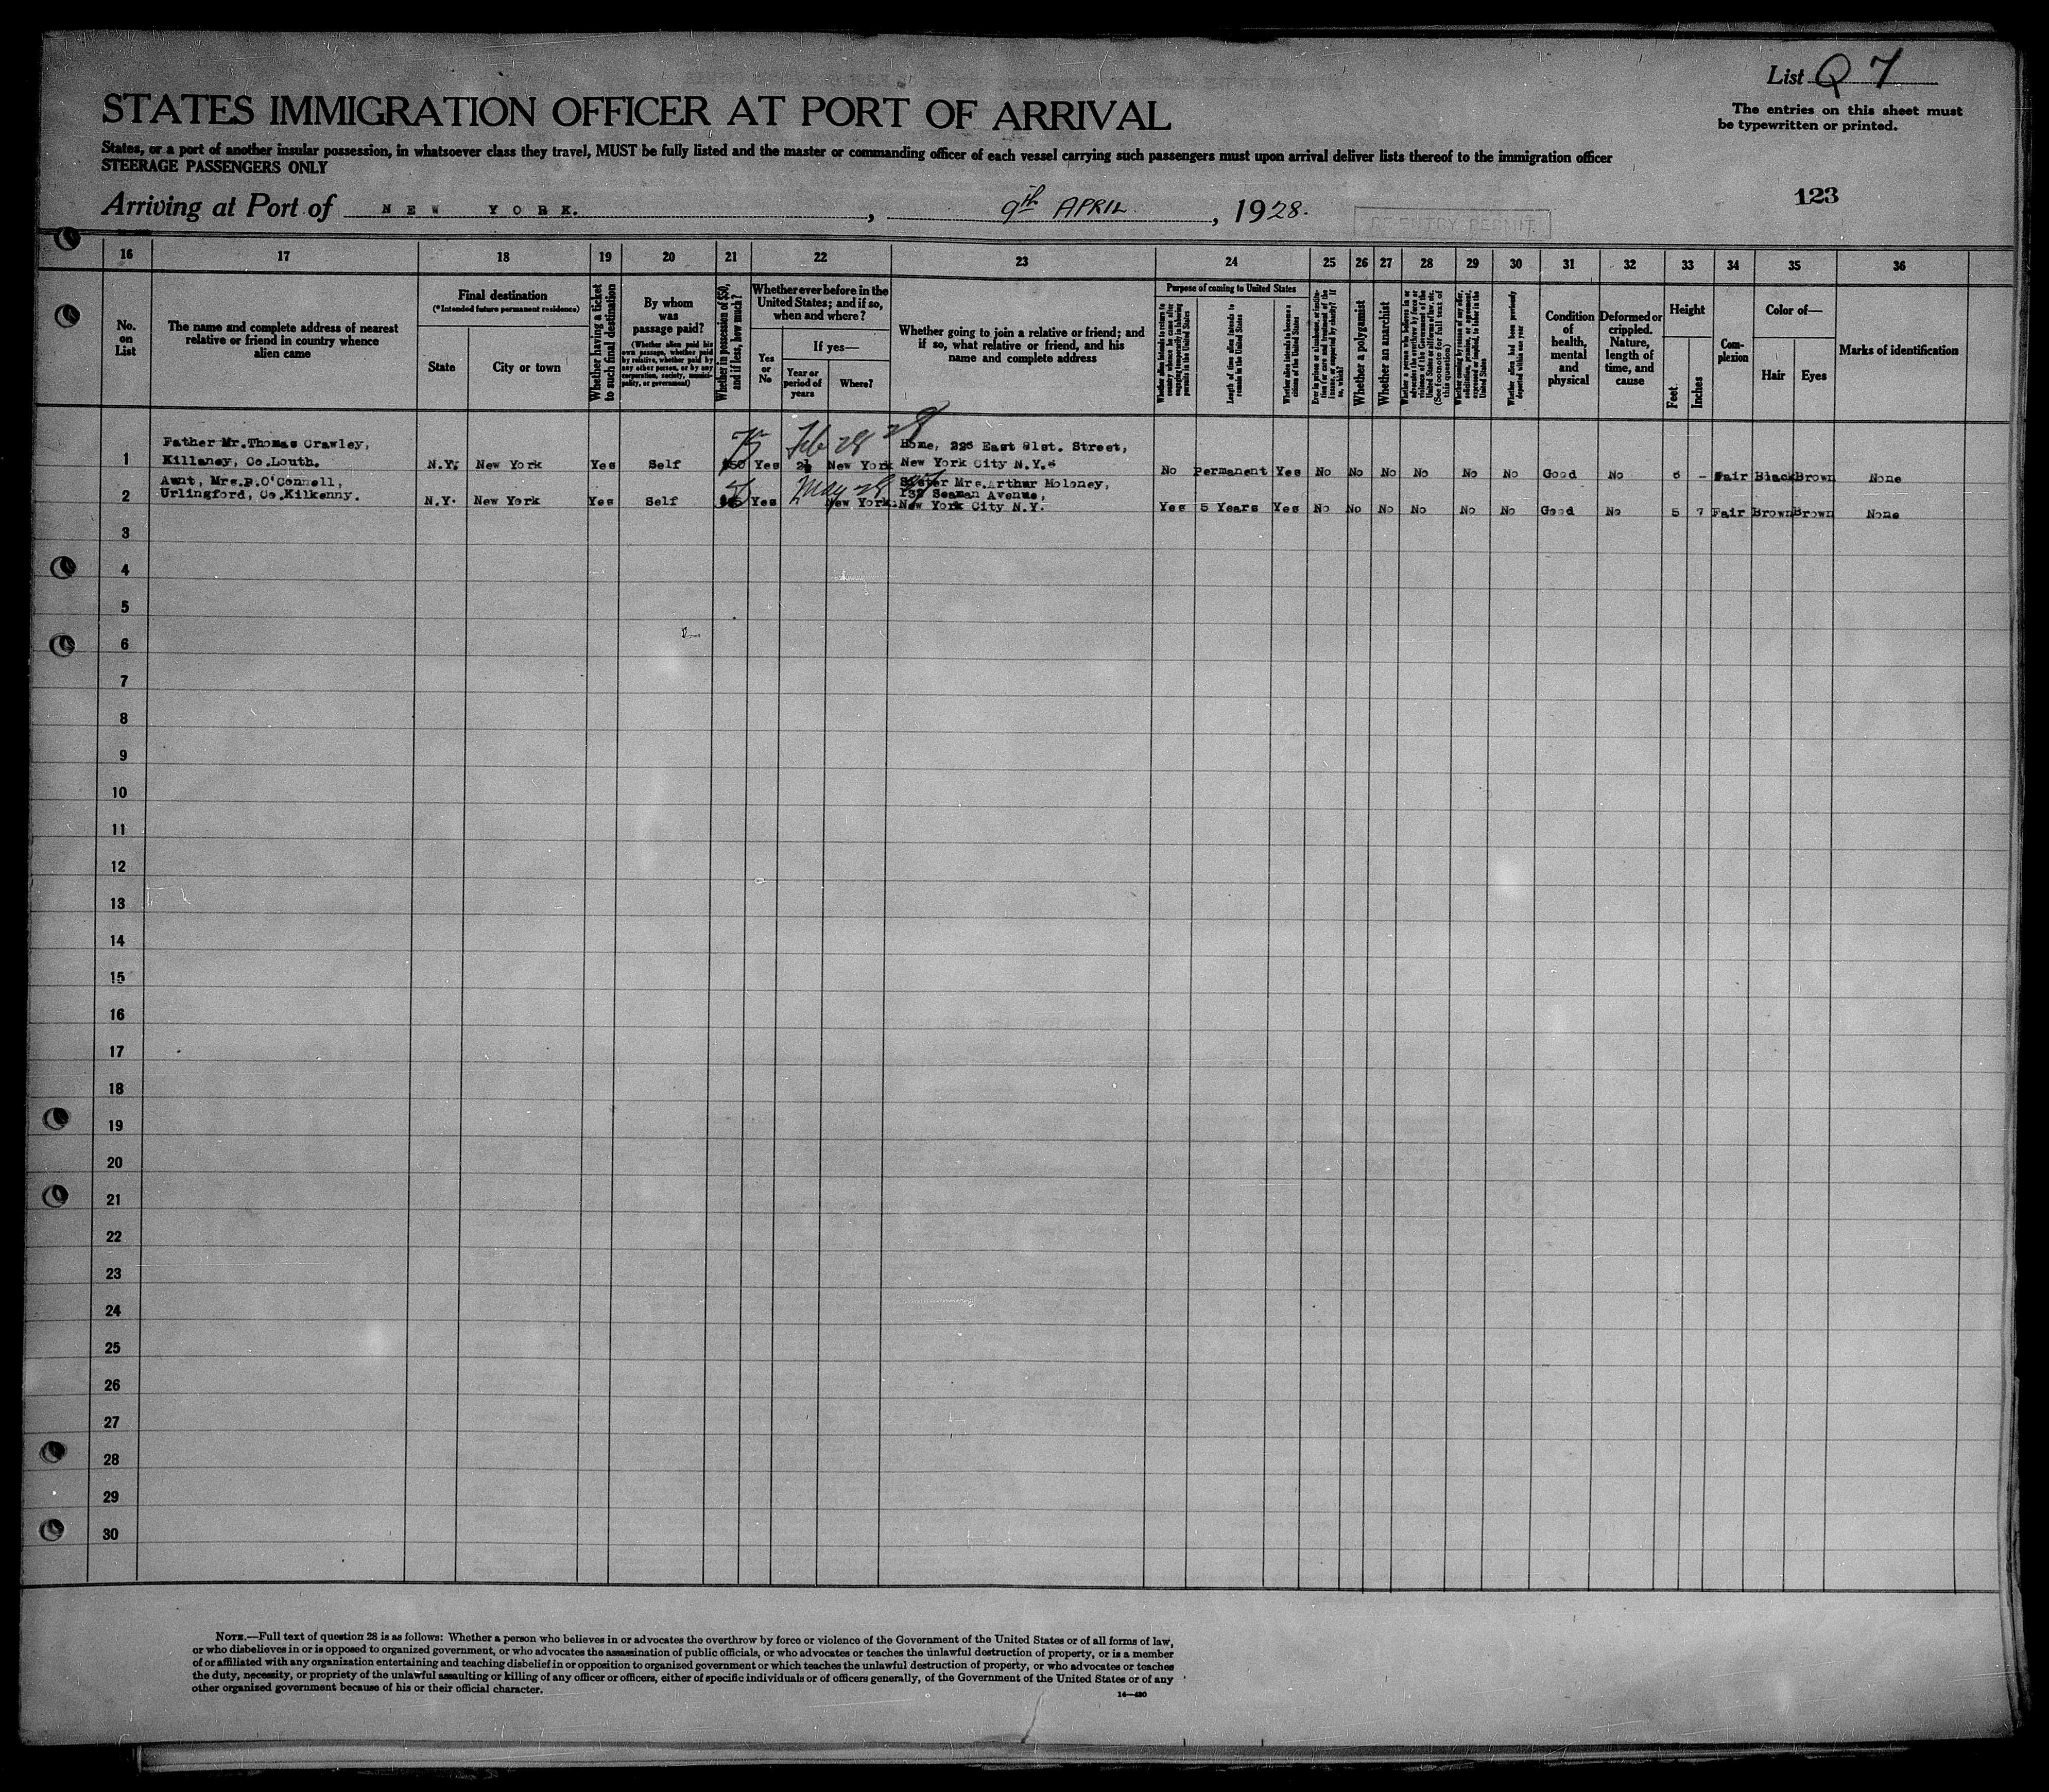 List Q 7
STATES IMMIGRATION OFFICER AT PORT OF ARRIVAL
The entries on this sheet must
be typewritten or printed.
States, or a port of another insular possession, in whatsoever class they travel, MUST be fully listed and the master or commanding officer of each vessel carrying such passengers must upon arrival deliver lists thereof to the immigration officer
STEERAGE PASSENGERS ONLY
Arriving at Port of NEW YORK. , 9th APRIL , 1928.
123
16 17 18 19 20 21 22 23 24 25 26 27 28 29 30 31 32 33 34 35 36
No.
on
List
The name and complete address of nearest
relative or friend in country whence
alien came
Final destination
(*Intended future permanent residence)
State
City or town
Whether having a ticket
to such final destination
By whom
was
passage paid?
(Whether alien paid his
own passage, whether paid
by relative, whether paid by
any other person, or by any
corporation, society, munici-
pality, or government)
Whether in possession of $50,
and if less, how much?
Whether ever before in the
United States; and if so,
when and where?
Yes
or
No
If yes—
Year or
period of
years
Where?
Whether going to join a relative or friend; and
if so, what relative or friend, and his
name and complete address
Purpose of coming to United States
Whether alien intends to return to
country whence he came after
engaging temporarily in laboring
pursuits in the United States
Length of time alien intends to
remain in the United States
Whether alien intends to become a
citizen of the United States
Ever in prison or almshouse, or institu-
tion for care and treatment of the
insane, or supported by charity? If
so, which?
Whether a polygamist
Whether an anarchist
Whether a person who believes in or
advocates the overthrow by force or
violence of the Government of the
United States or all forms of law, etc.
(See footnote for full text of
this question)
Whether coming by reason of any offer,
solicitation, promise, or agreement,
expressed or implied, to labor in the
United States
Whether alien had been previously
deported within one year
Condition
of
health,
mental
and
physical
Deformed or
crippled.
Nature,
length of
time, and
cause
Height
Feet
Inches
Com-
plexion
Color of—
Hair
Eyes
Marks of identification
Father Mr.Thomas Crawley,
1 Killaney, Co.Louth. N.Y. New York Yes Self 75 $50 Yes Feb 28 2½ New York
Home, 226 East 81st. Street,
New York City N.Y.
No Permanent Yes No No No No No No Good No 6 - Fair Black Brown None
Aunt, Mrs.P.O'Connell,
2 Urlingford, Co.Kilkenny. N.Y. New York Yes Self Yes May 28 New York.
Sister Mrs.Arthur Moloney,
Seaman Avenue,
New York City N.Y.
Yes 5 Years Yes No No No No No No Good No 5 7 Fair Brown Brown None
3
4
5
6
7
8
9
10
11
12
13
14
15
16
17
18
19
20
21
22
23
24
25
26
27
28
29
30
NOTE.—Full text of question 28 is as follows: Whether a person who believes in or advocates the overthrow by force or violence of the Government of the United States or of all forms of law,
or who disbelieves in or is opposed to organized government, or who advocates the assassination of public officials, or who advocates or teaches the unlawful destruction of property, or is a member
of or affiliated with any organization entertaining and teaching disbelief in or opposition to organized government or which teaches the unlawful destruction of property, or who advocates or teaches
the duty, necessity, or propriety of the unlawful assaulting or killing of any officer or officers, either of specific individuals or of officers generally, of the Government of the United States or of any
other organized government because of his or their official character.
14—430